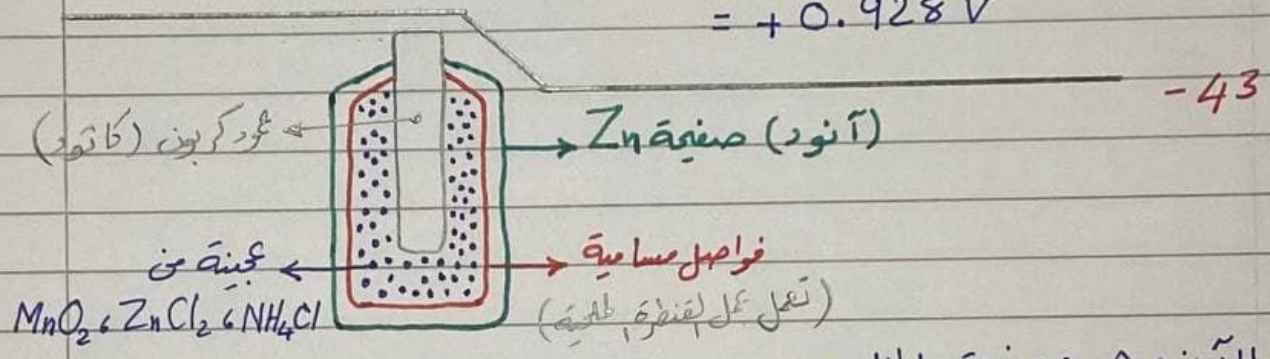 = + 0.928 V
-43
عمود كربون (كاثود)
Zn صفيحة (آنود)
عجينة من
MnO₂ ، ZnCl₂ ، NH₄Cl
فواصل مسامية
(تعمل عمل القنطرة الملحية)